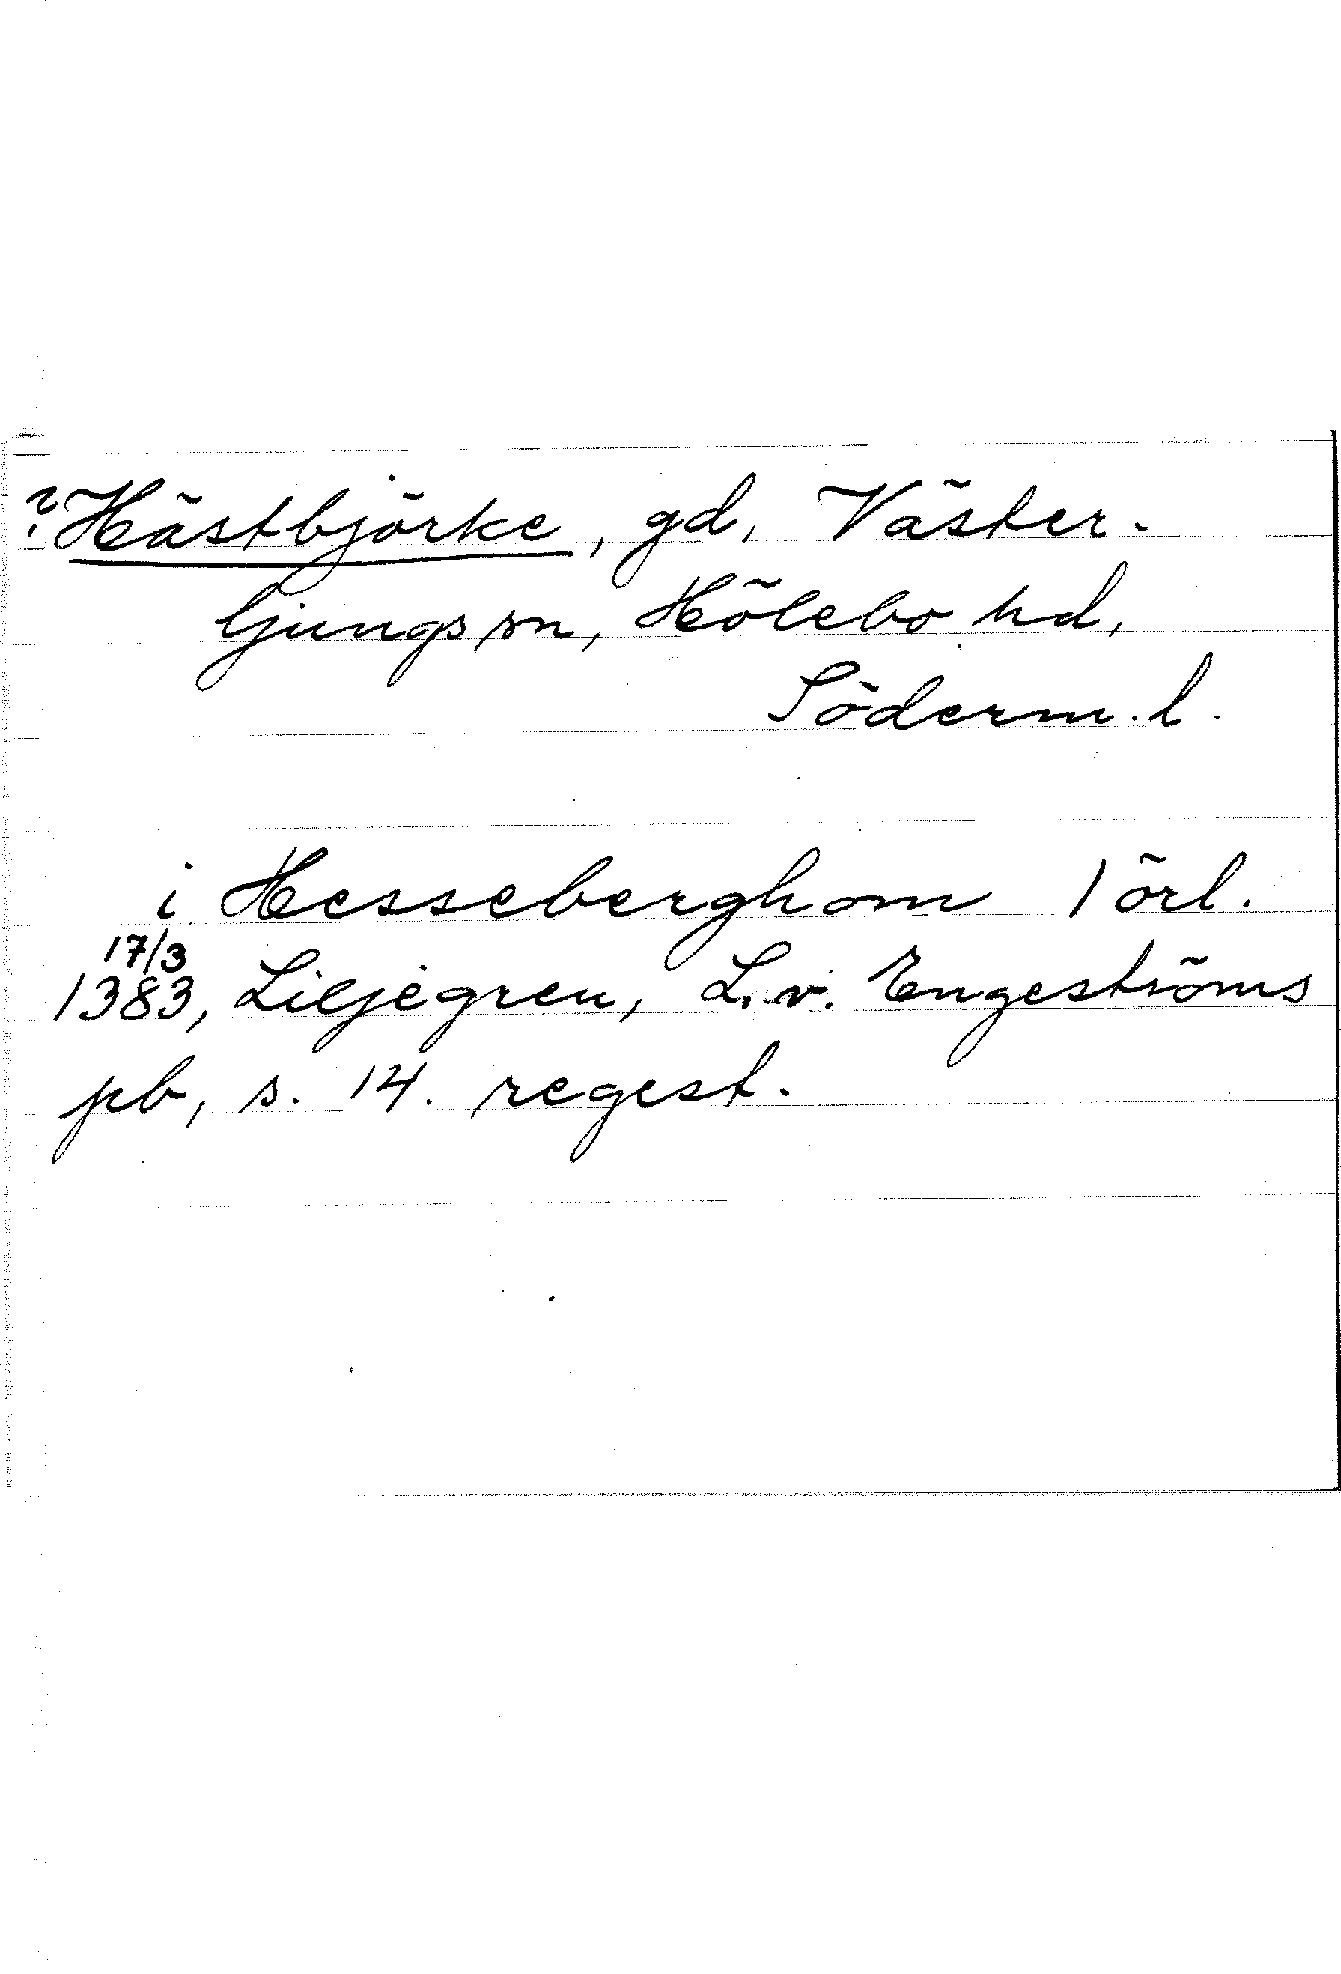 ? Hästbjörke, gd, Väster-
ljungs sn, Hölebo hd,
Söderm. l.
i Hesseberghom 1 örl.
17/3
1383, Liljegren, L. v. Engeströms
pb, s. 14. regest.